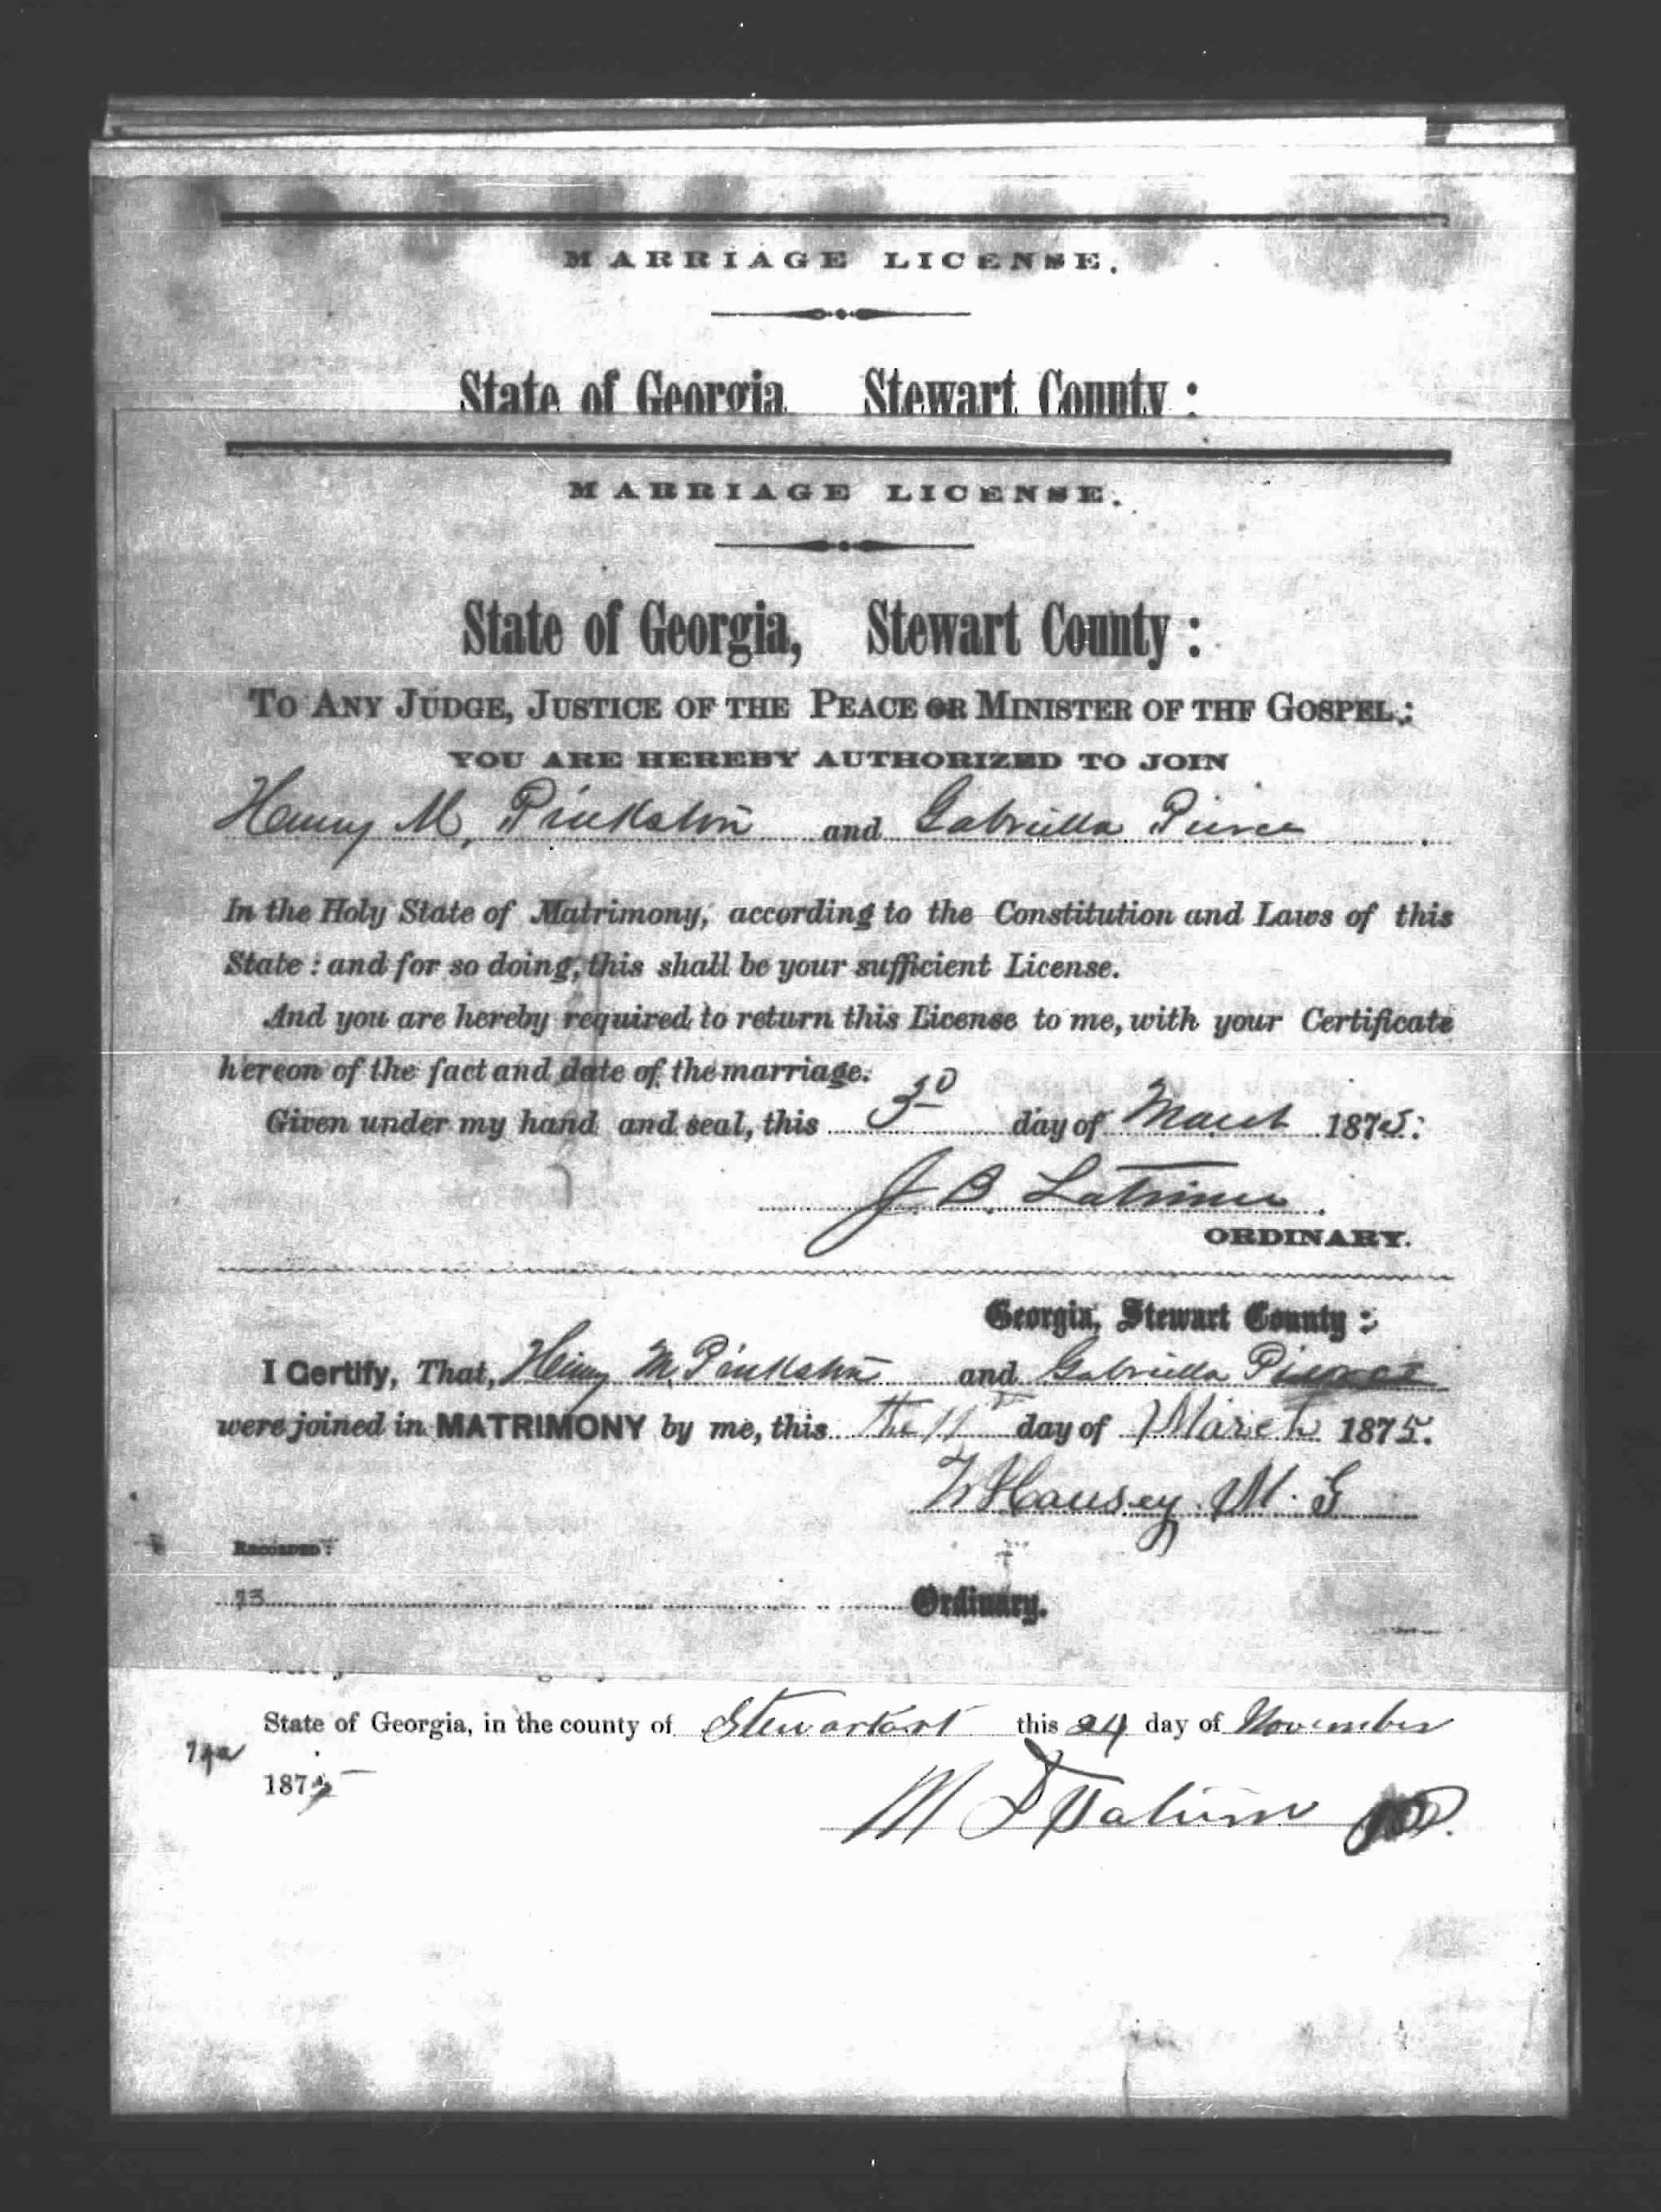 MARRIAGE LICENSE.
State of Georgia Stewart County :
MARRIAGE LICENSE.
State of Georgia, Stewart County :
TO ANY JUDGE, JUSTICE OF THE PEACE OR MINISTER OF THE GOSPEL :
YOU ARE HEREBY AUTHORIZED TO JOIN
Henry M, Pinkston and Gabriella Pierce
In the Holy State of Matrimony, according to the Constitution and Laws of this
State : and for so doing, this shall be your sufficient License.
And you are hereby required to return this License to me, with your Certificate
hereon of the fact and date of the marriage.
Given under my hand and seal, this 3d day of March 1875.
J B Latimer
ORDINARY.
Georgia, Stewart County :
I Certify, That, Henry M Pinkston and Gabriella Pierce
were joined in MATRIMONY by me, this the 11th day of March 1875.
Hausey M. G
RECORDED
73 Ordinary.
State of Georgia, in the county of this 24 day of November
1875
M